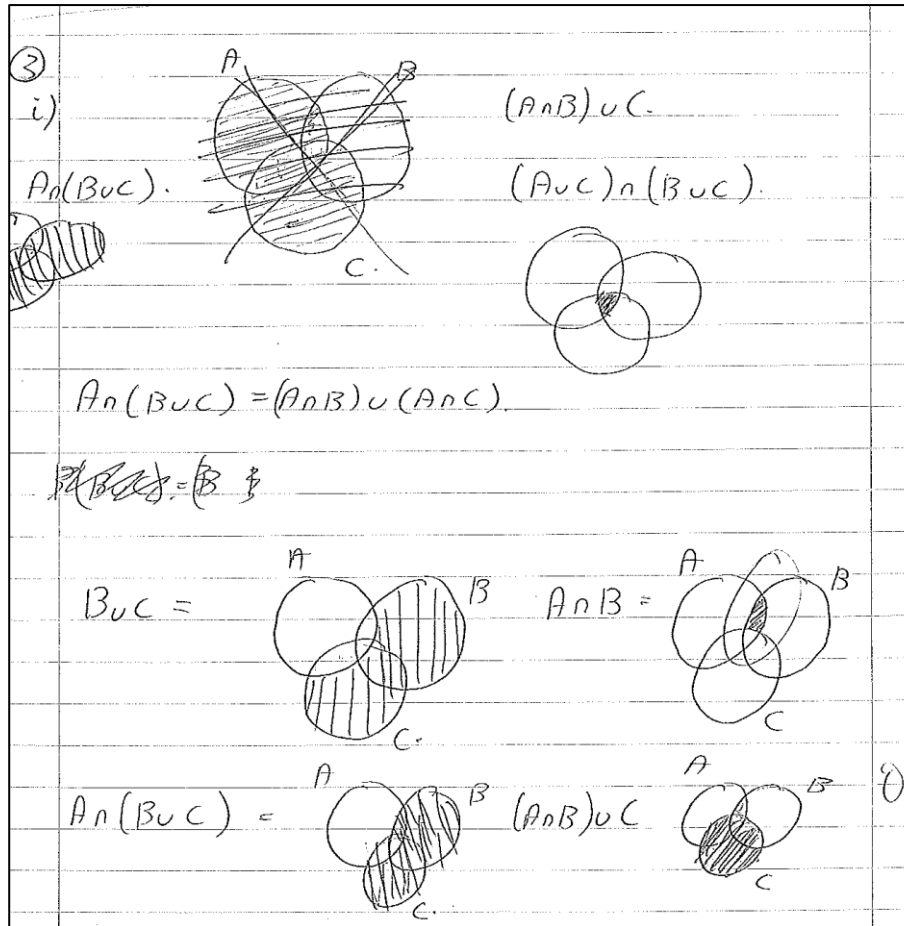 3
i)
A B
(A∩B)∪C.
A∩(B∪C).
(A∪C)∩(B∪C).
C.
A∩(B∪C) = (A∩B)∪(A∩C).
= (B
A B
B∪C =
C.
A B
A∩B =
C
A B
A∩(B∪C) =
C.
A B
(A∩B)∪C
C